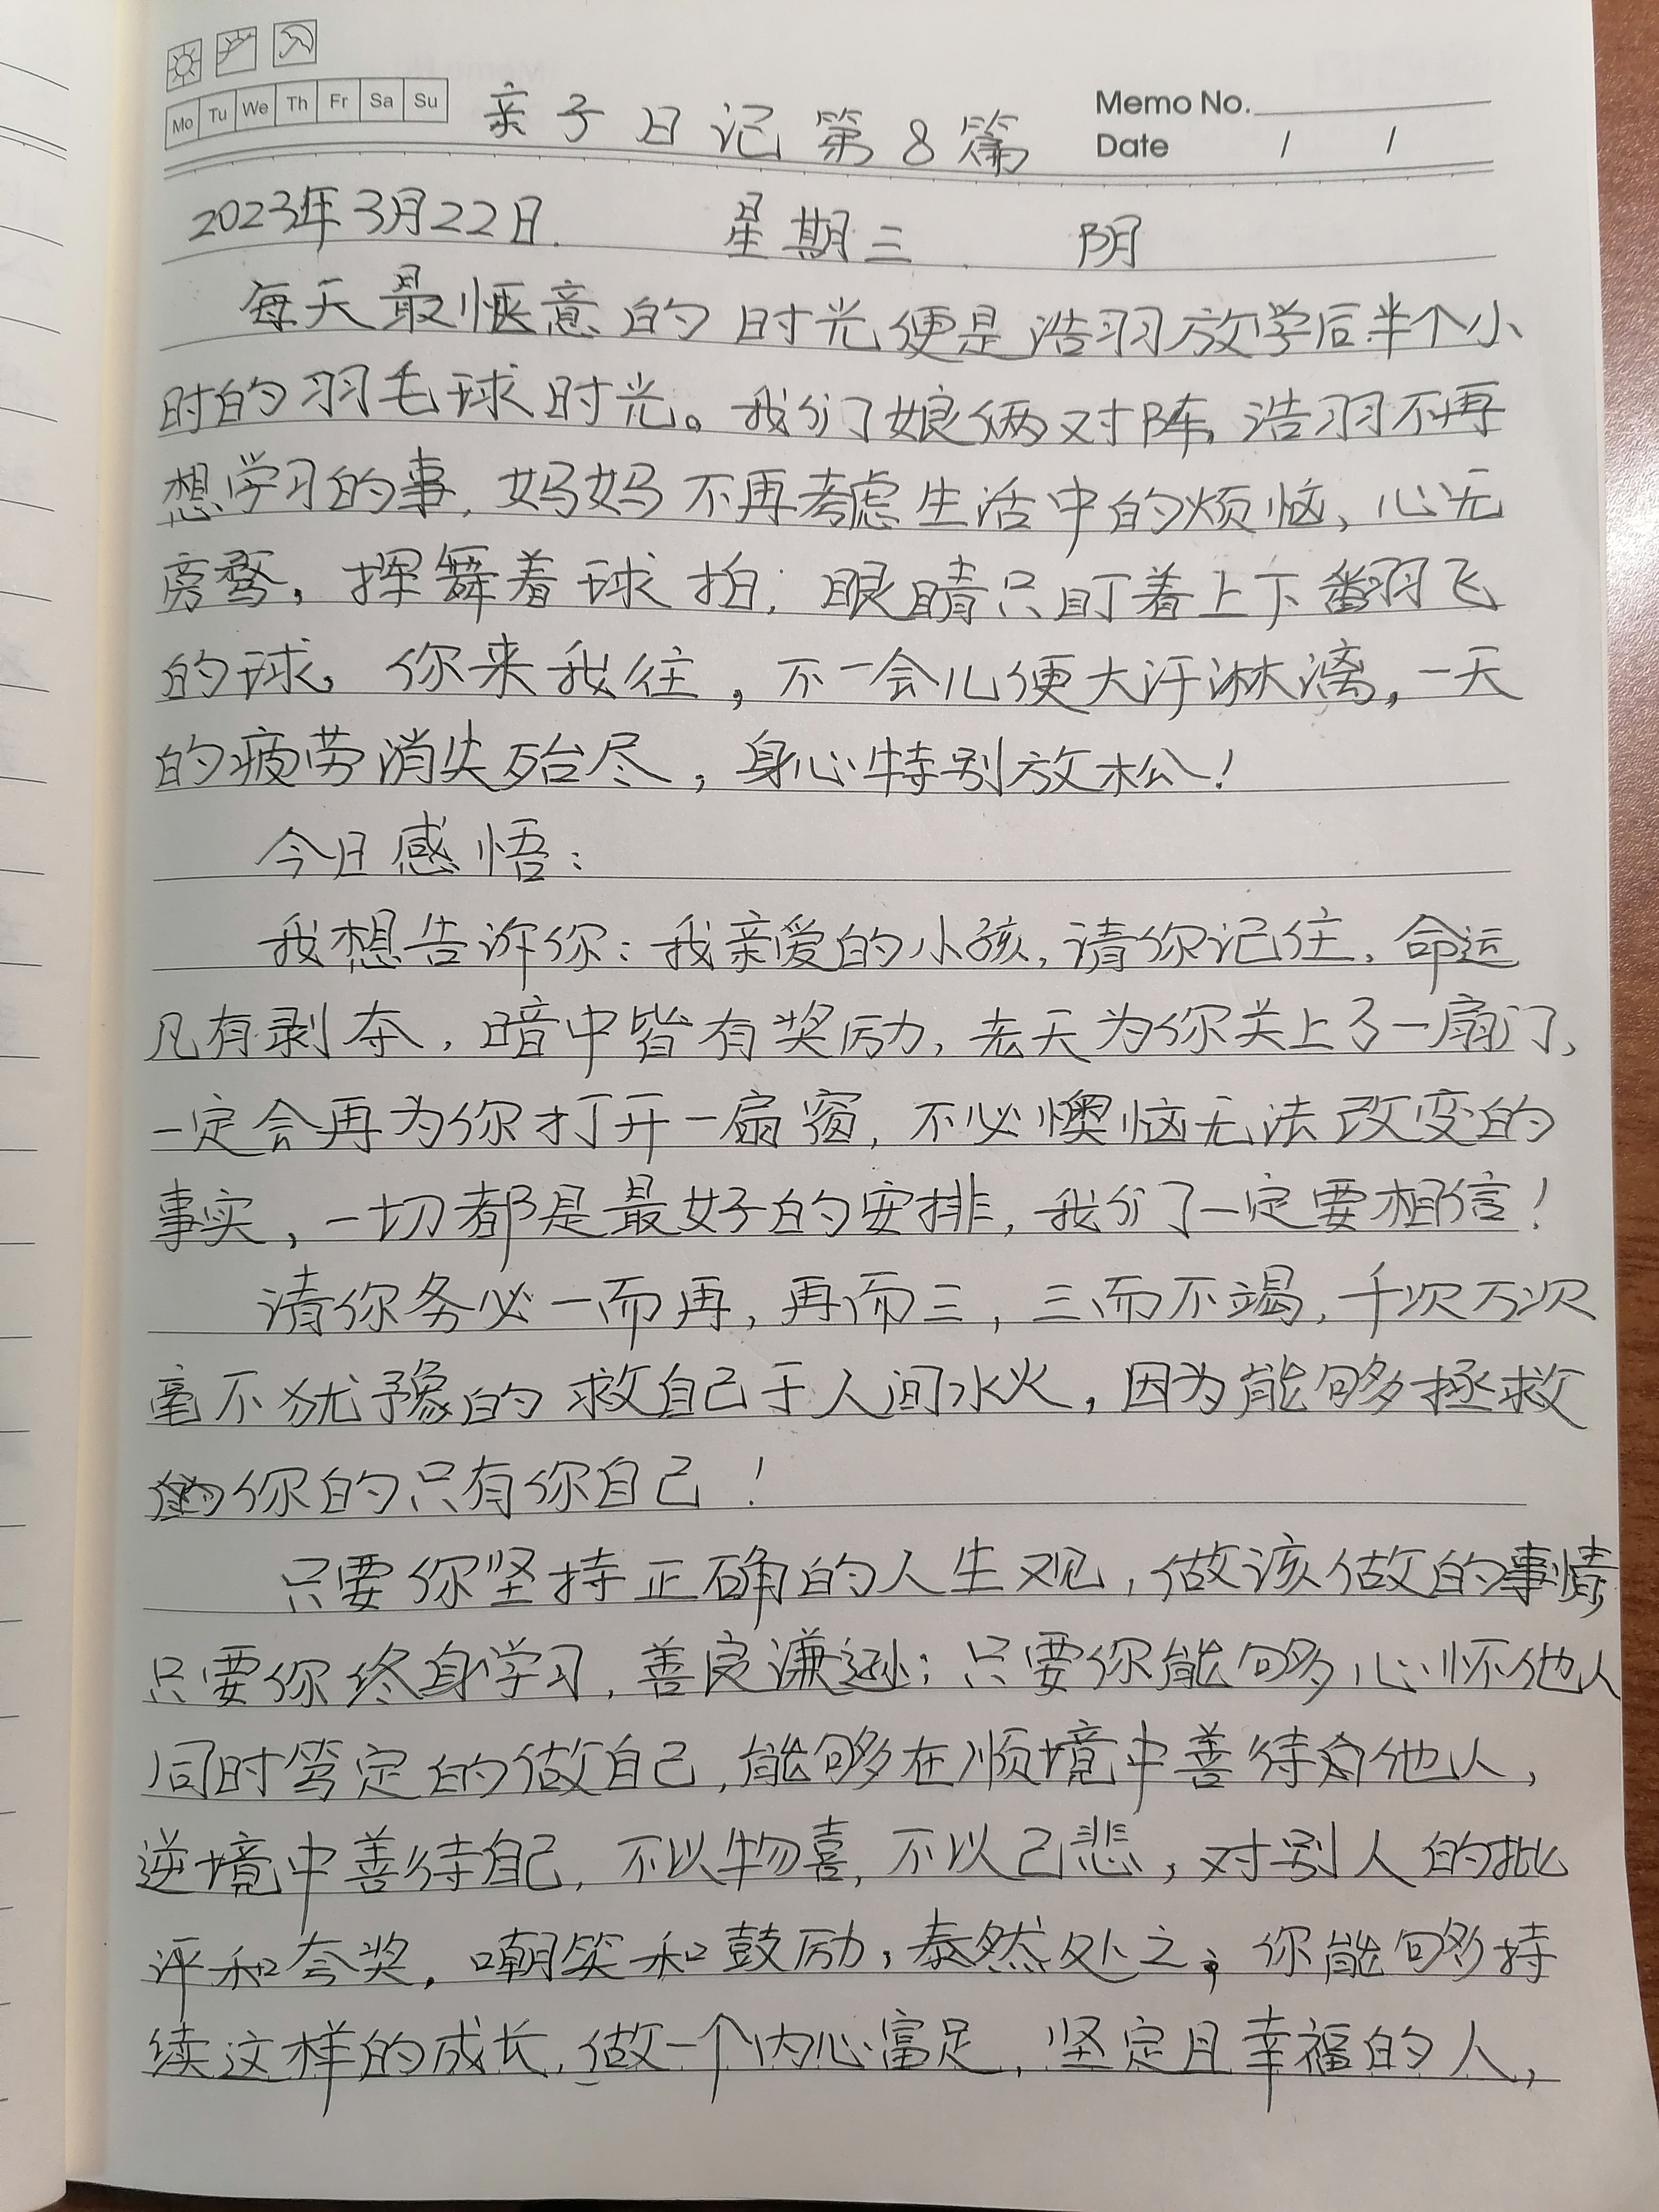 Mo Tu We Th Fr Sa Su
Memo No.
Date / /
亲子日记第8篇
2023年3月22日. 星期三 阴
每天最惬意的时光便是浩羽放学后半个小
时的羽毛球时光。我们娘俩对阵,浩羽不再
想学习的事,妈妈不再考虑生活中的烦恼、心无
旁骛,挥舞着球拍,眼睛只盯着上下翻飞
的球。你来我往,不一会儿便大汗淋漓,一天
的疲劳消失殆尽,身心特别放松!
今日感悟:
我想告诉你:我亲爱的小孩,请你记住,命运
凡有剥夺,暗中皆有奖励,老天为你关上了一扇门、
一定会再为你打开一扇窗,不必懊恼无法改变的
事实,一切都是最好的安排,我们一定要相信!
请你务必一而再,再而三,三而不竭,千次万次
毫不犹豫的救自己于人间水火,因为能够拯救
你的只有你自己!
只要你坚持正确的人生观,做该做的事情;
只要你终身学习,善良谦逊;只要你能够心怀他人
同时笃定的做自己,能够在顺境中善待他人,
逆境中善待自己,不以物喜,不以己悲,对别人的批
评和夸奖,嘲笑和鼓励,泰然处之;你能够持
续这样的成长,做一个内心富足,坚定且幸福的人,